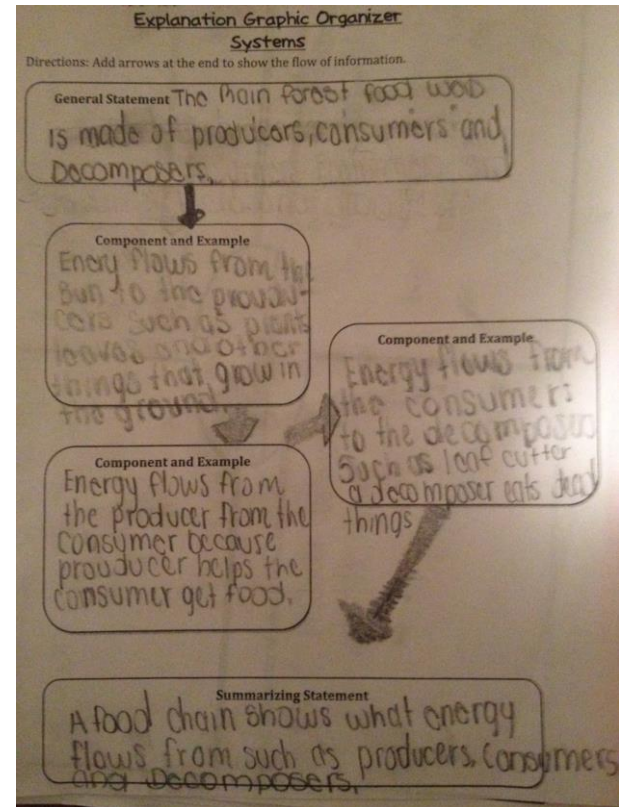 Explanation Graphic Organizer
Systems
Directions: Add arrows at the end to show the flow of information.
General Statement The Rain forest food web
is made of producers, consumers and
Decomposers.
Component and Example
Energy flows from the
sun to the prouducers such as plants
leaves and other
things that grow in
the ground.
Component and Example
Energy flows from the
the producer from the
consumer because
prouducer helps the
consumer get food.
Component and Example
Energy flows from
the consumers
to the decomposers
Such as leaf cutter
a decomposer eats dead
things
Summarizing Statement
A food chain shows what energy
flows from such as producers, consumers
and Decomposers.